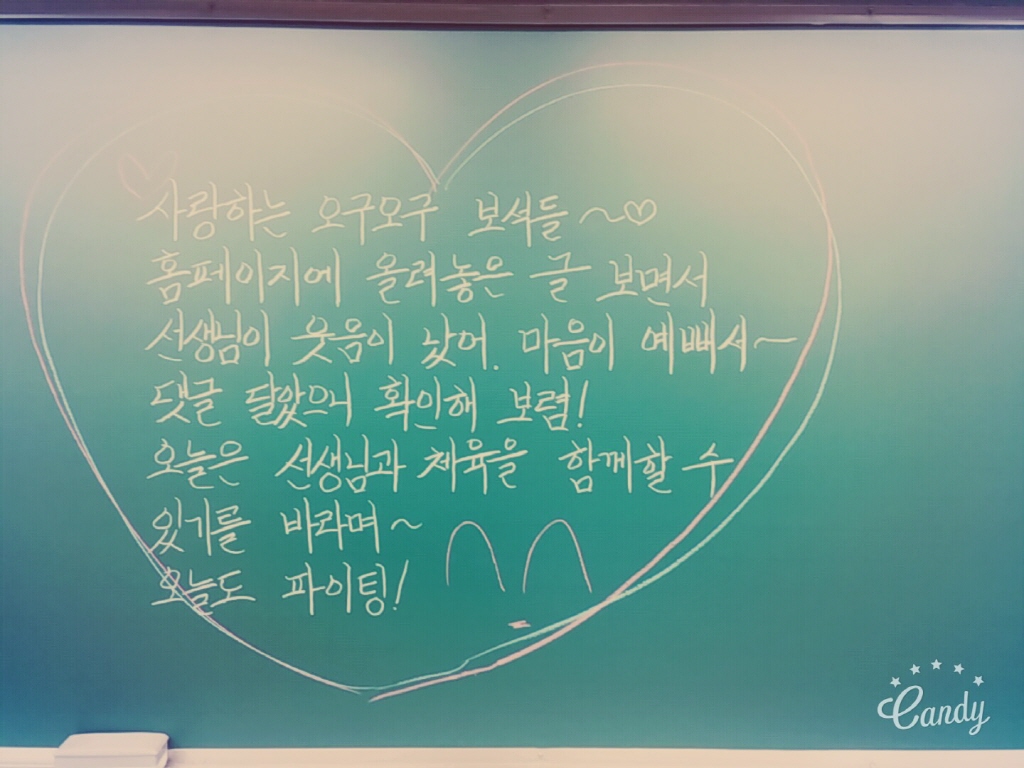 사랑하는 오구오구 보석들~♡
홈페이지에 올려놓은 글 보면서
선생님이 웃음이 났어. 마음이 예뻐서~
댓글 달았으니 확인해 보렴!
오늘은 선생님과 체육을 함께할 수
있기를 바라며~
오늘도 파이팅!
Candy